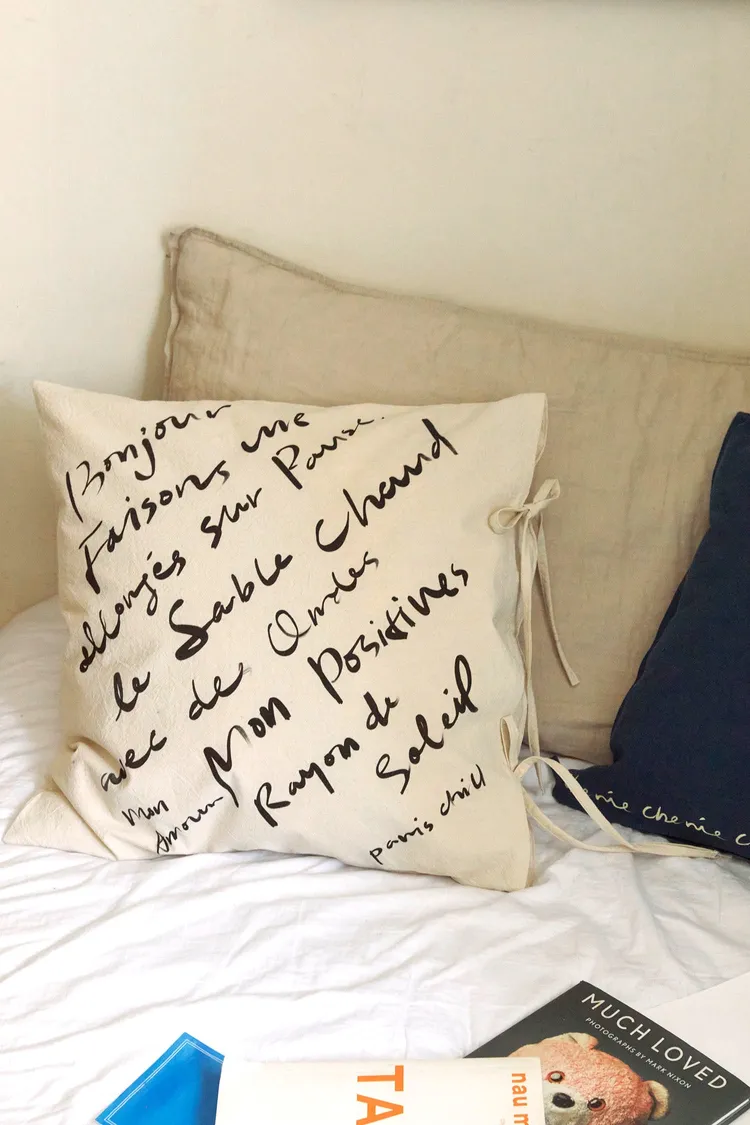 Bonjour
Faisons une
allongés sur Pause.
le Sable Chaud
avec des Ondes
Mon Positives
Rayon de
Soleil
Mon
Amour
paris chill
cherie cherie c
MUCH LOVED
PHOTOGRAPHS BY MARK NIXON
TA
nau m